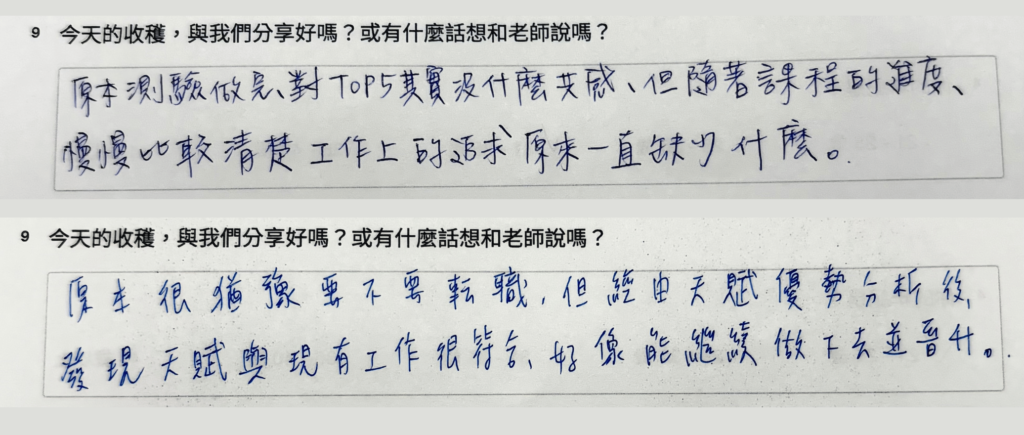 9 今天的收穫，與我們分享好嗎？或有什麼話想和老師說嗎？
原本測驗做完、對TOP5其實沒什麼共感、但隨著課程的進度、
慢慢比較清楚工作上的追求原來一直缺少什麼。
9 今天的收穫，與我們分享好嗎？或有什麼話想和老師說嗎？
原本很猶豫要不要転職，但經由天賦優勢分析後，
發現天賦與現有工作很符合、好像能繼續做下去並晉升。